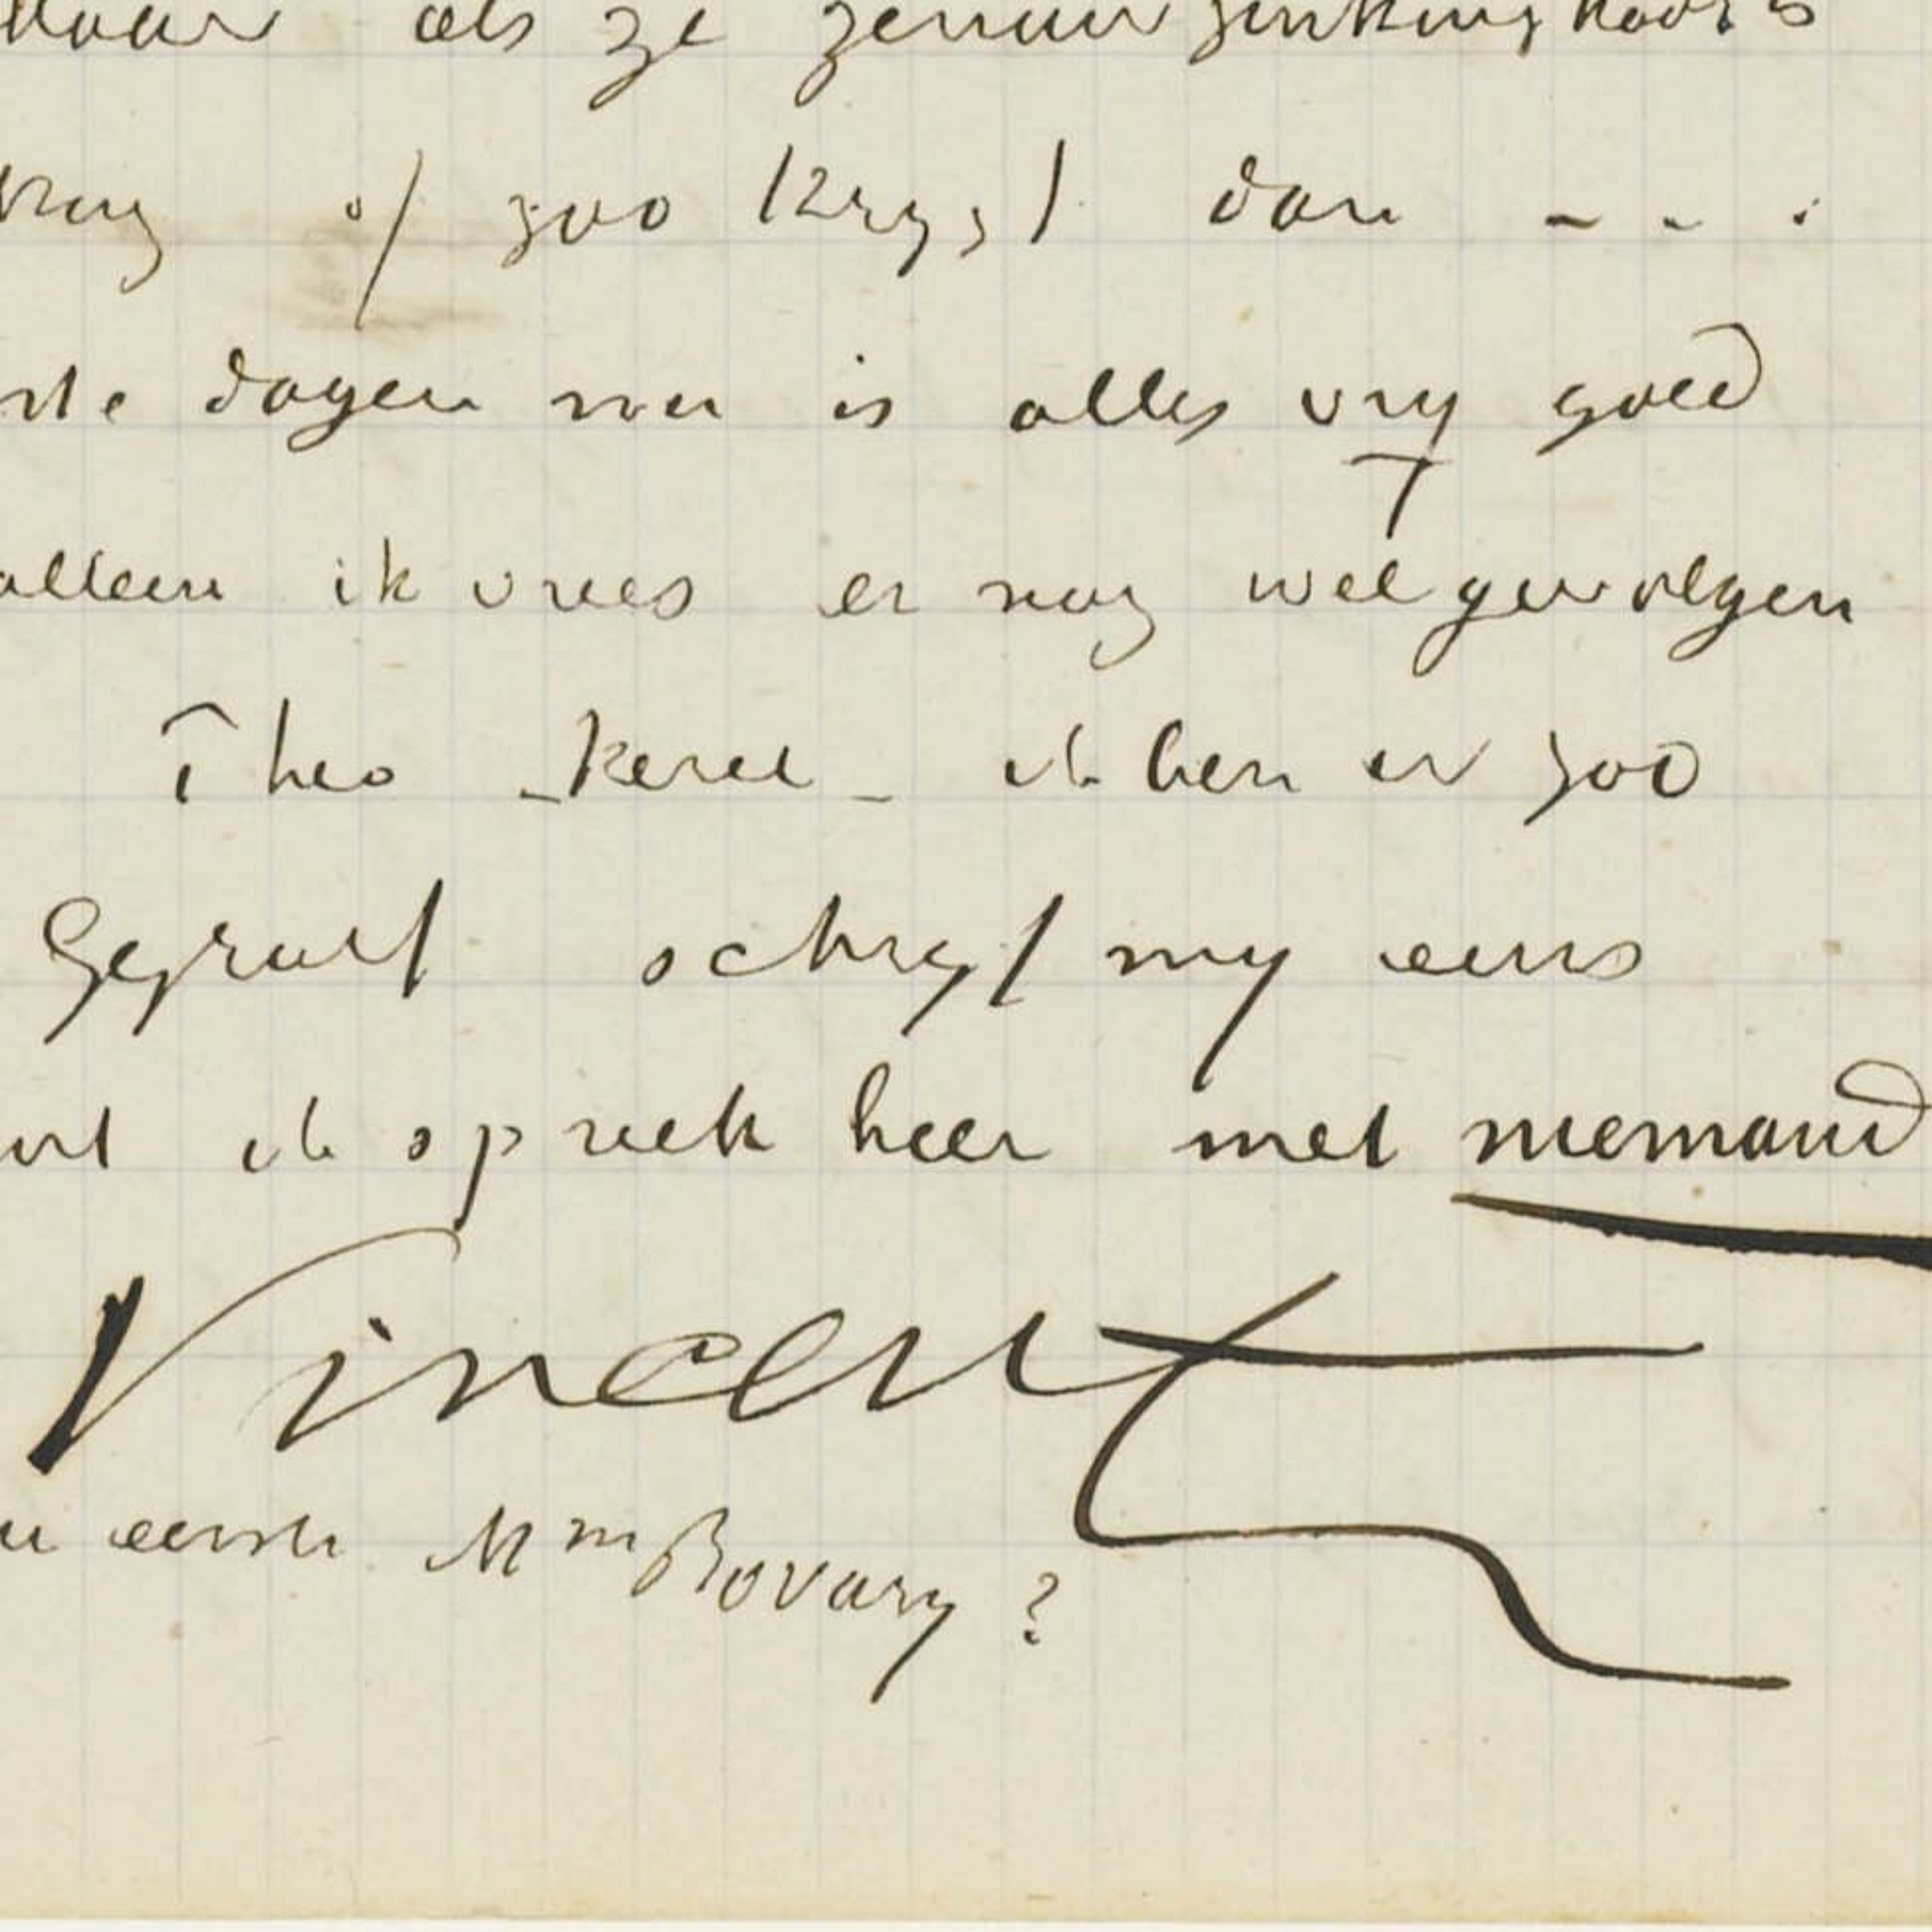 Maar als ze zenuwzinkingkoorts
krijg of zoo krijgt dan - - .
ste dagen nu is alles vrij goed
alleen ik vrees er nog wel gevolgen
Theo - kerel - ik ben er zoo
Gegroet schrijf mij eens
want ik spreek hier met niemand
Vincent
u eerste Mme Bovary?